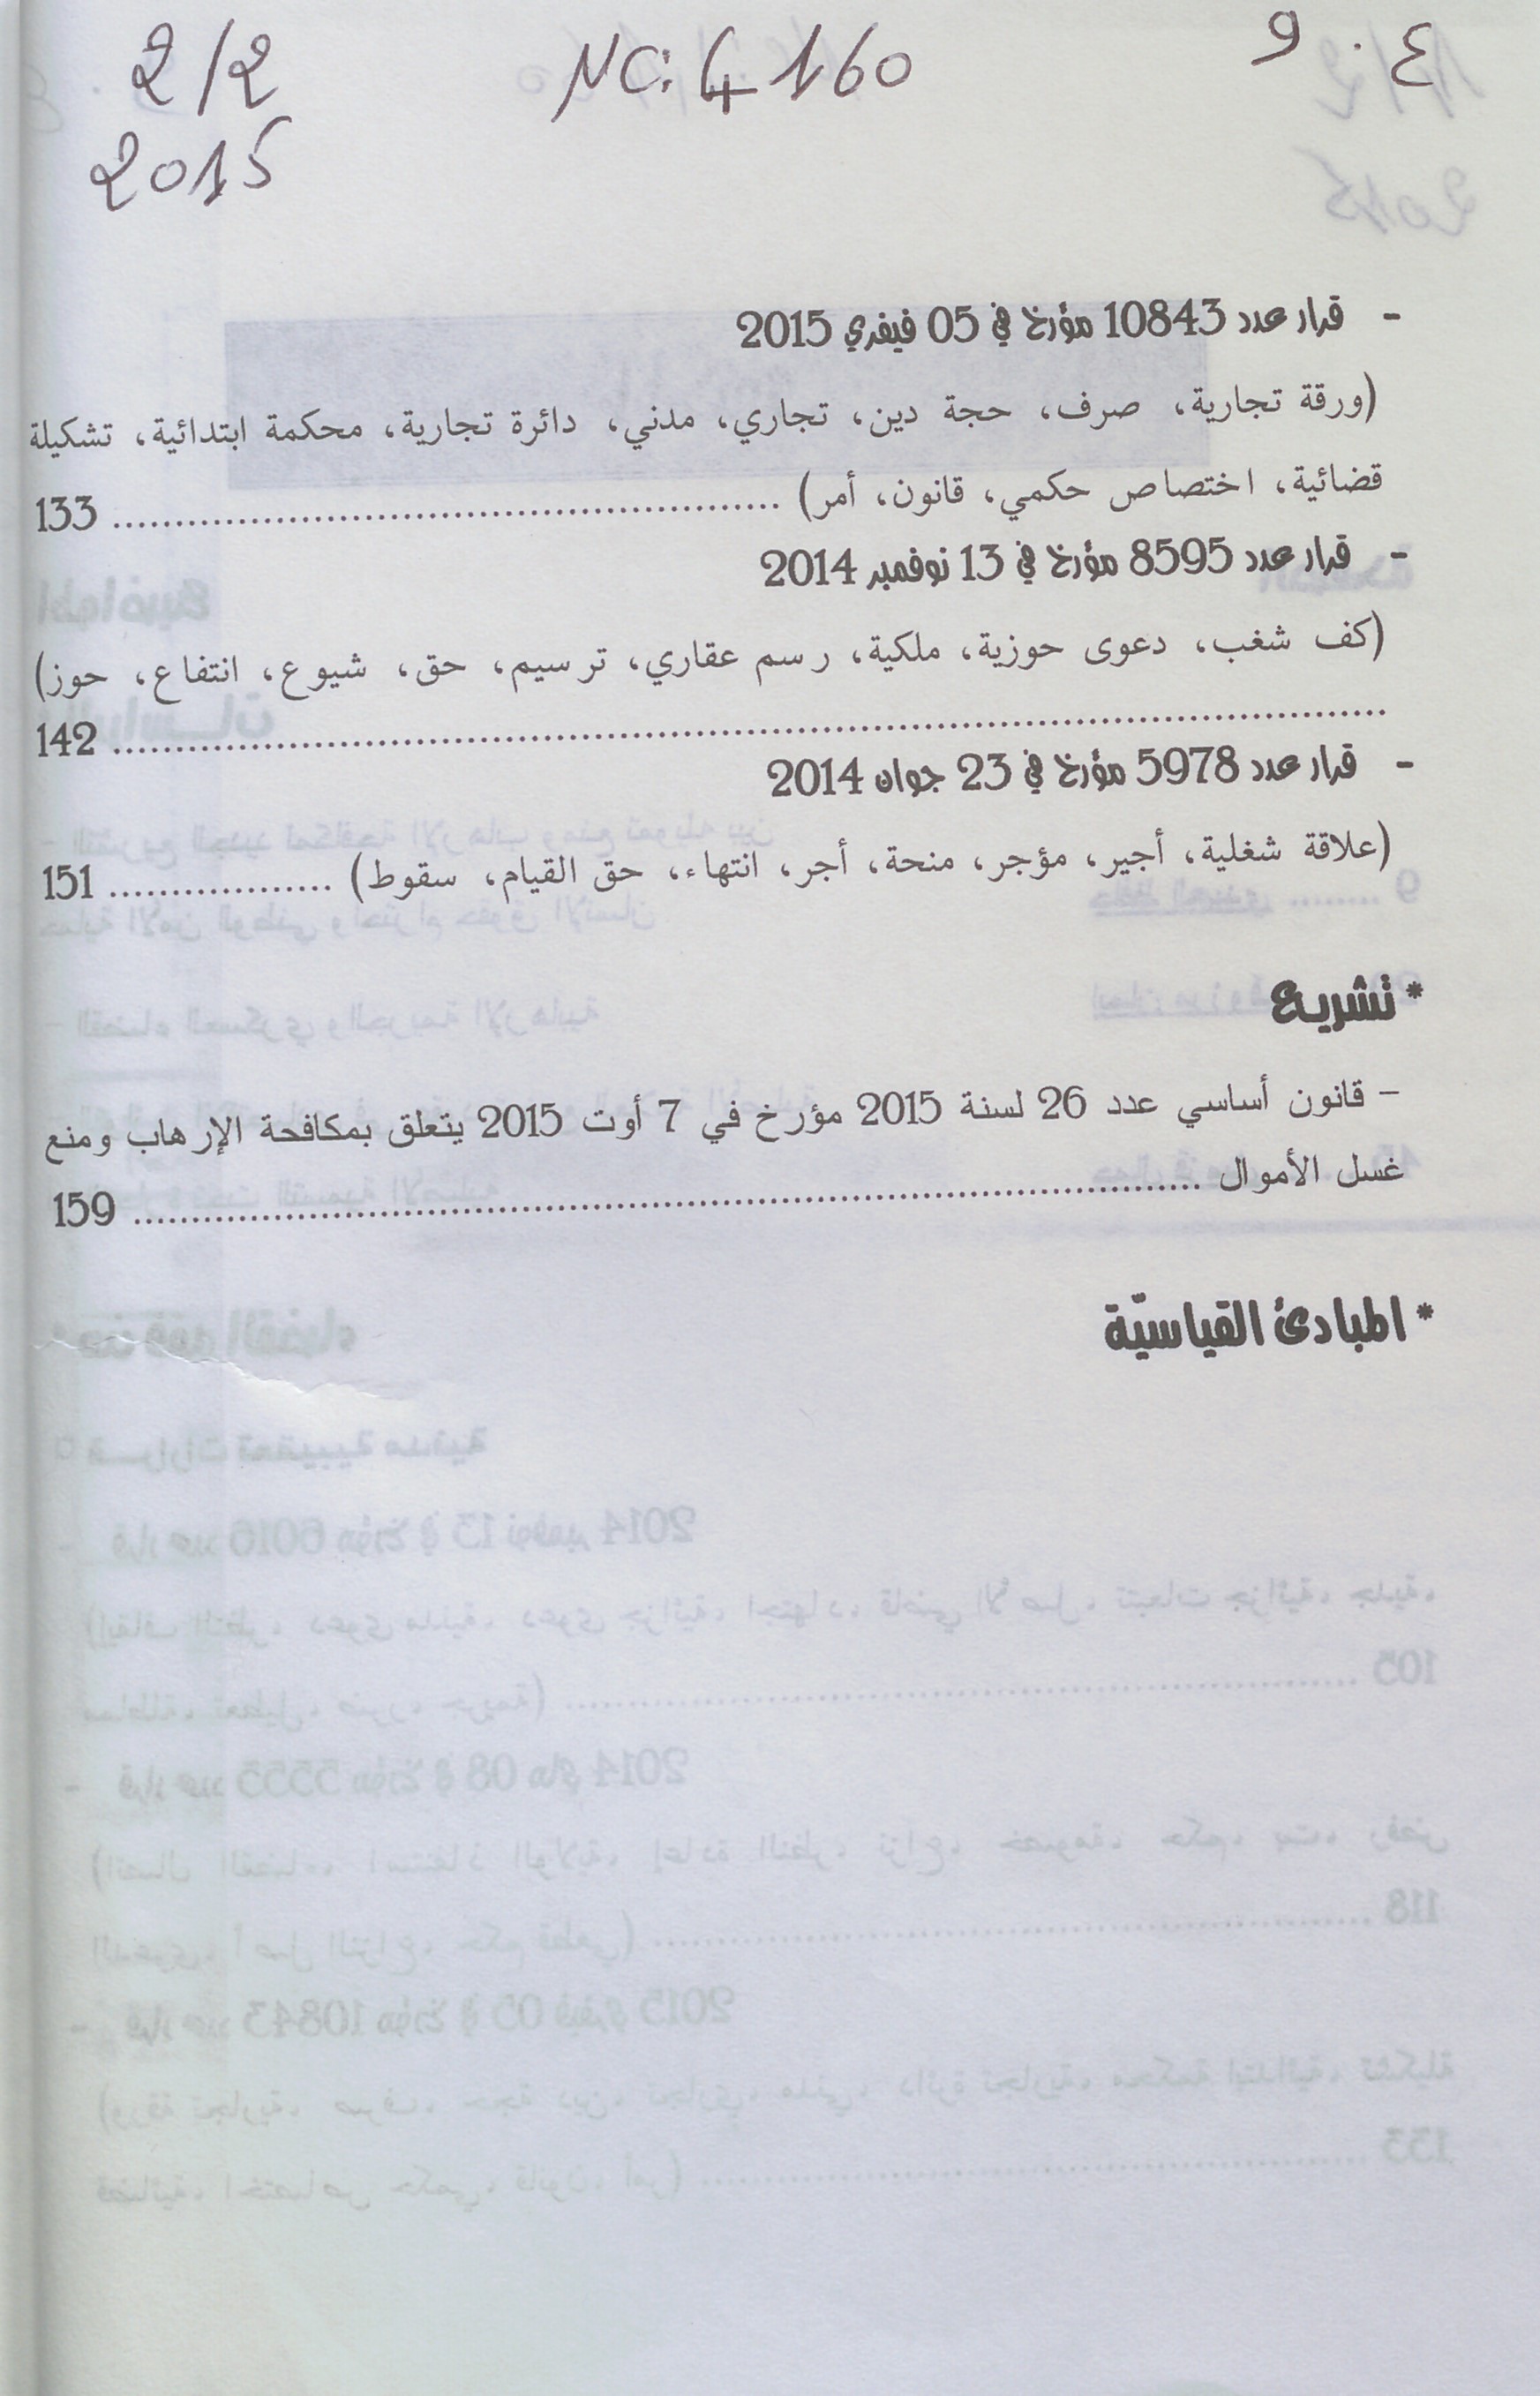 2/2 NC: 4160 ع . و
2015
- قرار عدد 10843 مؤرخ في 05 فيفري 2015
(ورقة تجارية، صرف، حجة دين، تجاري، مدني، دائرة تجارية، محكمة ابتدائية، تشكيلة
قضائية، اختصاص حكمي، قانون، أمر) ........................................ 133
- قرار عدد 8595 مؤرخ في 13 نوفمبر 2014
(كف شغب، دعوى حوزية، ملكية، رسم عقاري، ترسيم، حق، شيوع، انتفاع، حوز)
........................................ 142
- قرار عدد 5978 مؤرخ في 23 جوان 2014
(علاقة شغلية، أجير، مؤجر، منحة، أجر، انتهاء، حق القيام، سقوط) .................. 151
* تشريع
– قانون أساسي عدد 26 لسنة 2015 مؤرخ في 7 أوت 2015 يتعلق بمكافحة الإرهاب ومنع
غسل الأموال ........................................ 159
* المبادئ القياسيّة